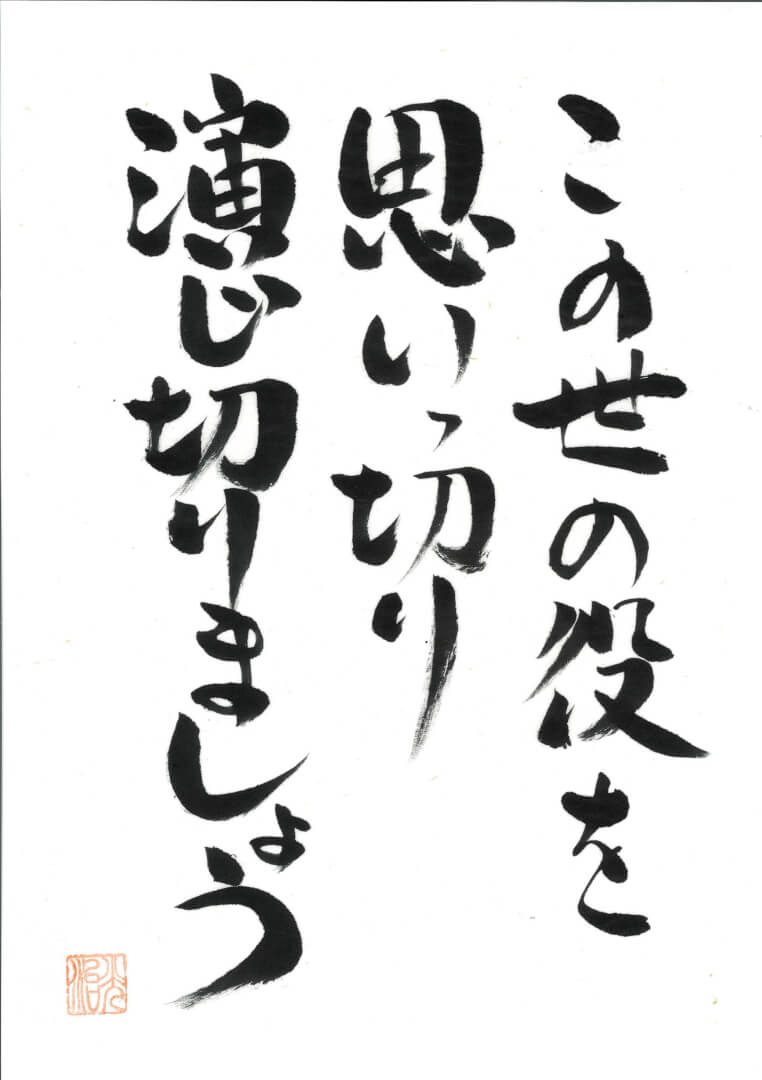 この世の役を
思いっ切り
演じ切りましょう